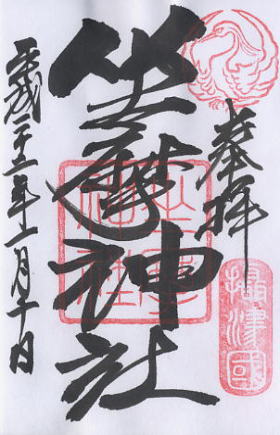 奉拝
攝津國
坐摩神社
坐摩
神社
平成二十三年十一月十日